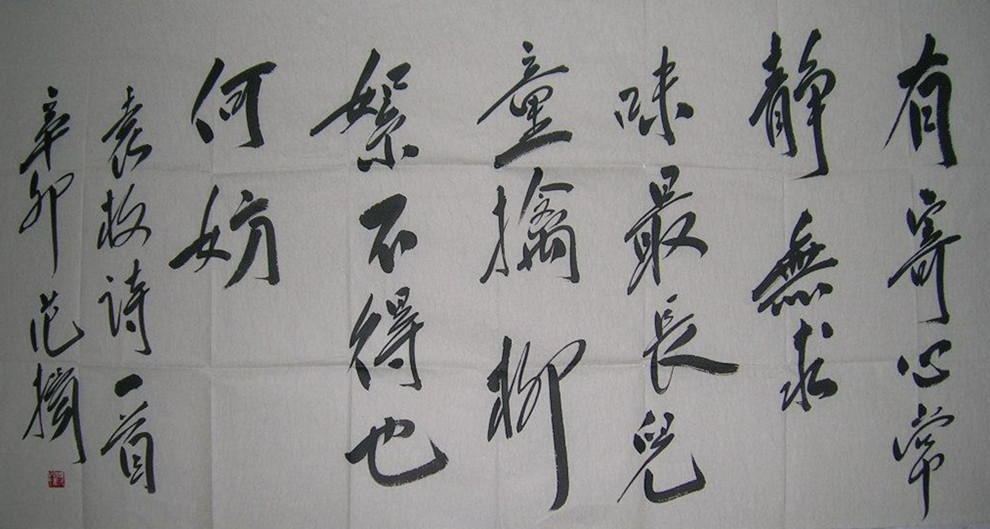 有寄心常
静無求
味最長兒
童擒柳
絮不得也
何妨
袁枚诗一首
辛卯范